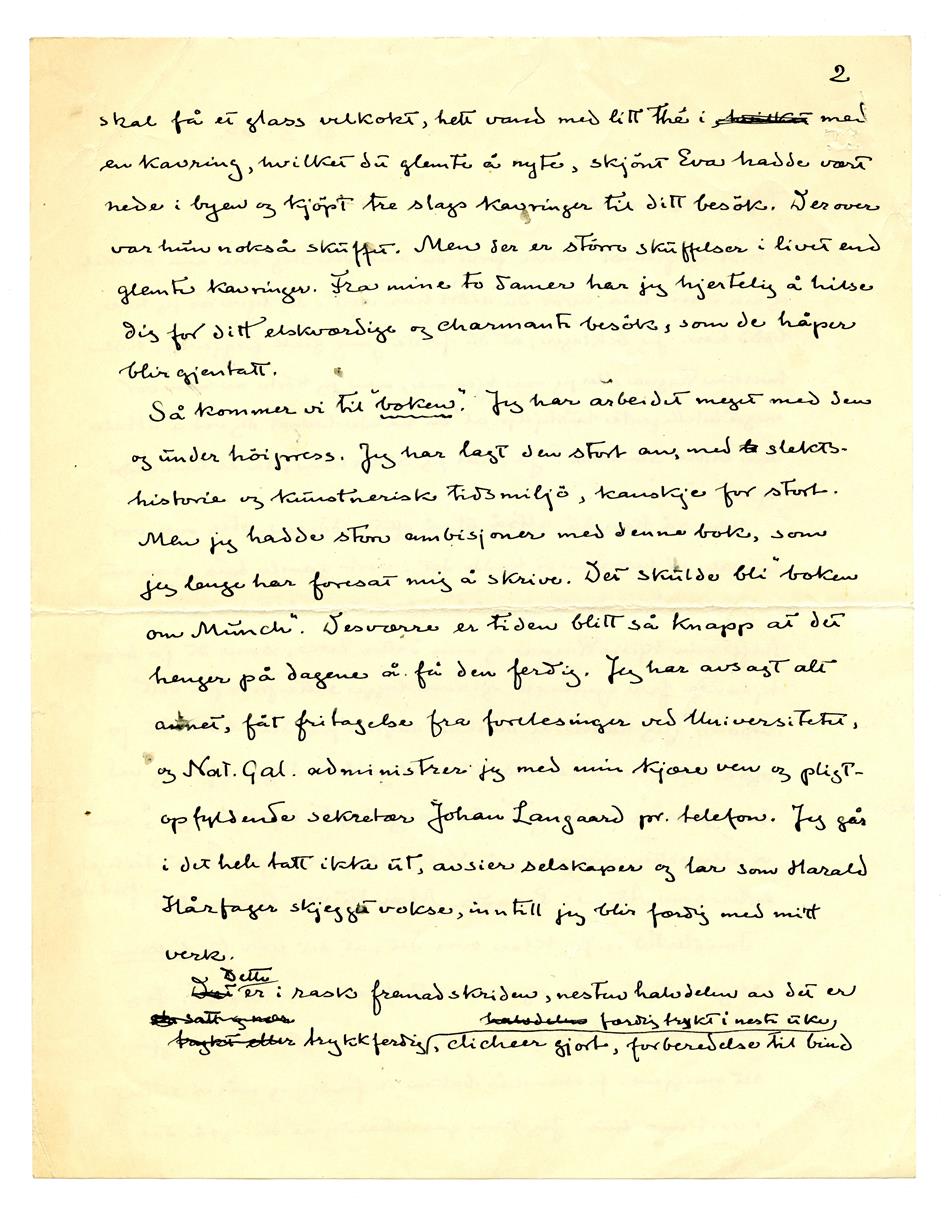 2
skal få et glass velkokt, hett vand med litt thé i, hvilket med
en kavring, hvilket du glemte å nyte, skjönt Eva hadde vært
nede i byen og kjöpt tre slags kavringer til ditt besök. Derover
var hun nokså skuffet. Men der er större skuffelser i livet end
glemte kavringer. Fra mine to damer har jeg hjertelig å hilse
dig for ditt elskværdige og charmante besök, som de håper
blir gjentatt.
Så kommer vi til "boken". Jeg har arbeidet meget med den
og under höipress. Jeg har lagt den stort an, med slekts-
historie og kunstnerisk tidsmiljö, kanskje for stort.
Men jeg hadde store ambisjoner med denne bok, som
jeg lenge har foresat mig å skrive. Det skulde bli "boken
om Munch". Desværre er tiden blitt så knapp at det
henger på dagene å få den ferdig. Jeg har avsagt alt
annet, fåt fritagelse fra forelesinger ved Universitetet,
og Nat. Gal. administrer jeg med min kjære ven og pligt-
opfyldende sekretær Johan Langaard pr. telefon. Jeg går
i det hele tatt ikke ut, avsier selskaper og lar som Harald
Hårfager skjegget vokse, inntill jeg blir færdig med mitt
verk.
Dette
Det er i rask fremadskriden, nesten halvdelen av det er
satt og halvdelen færdig trykt i neste uke,
trykt eller trykkferdig, clicheer gjort, forberedelse til bind